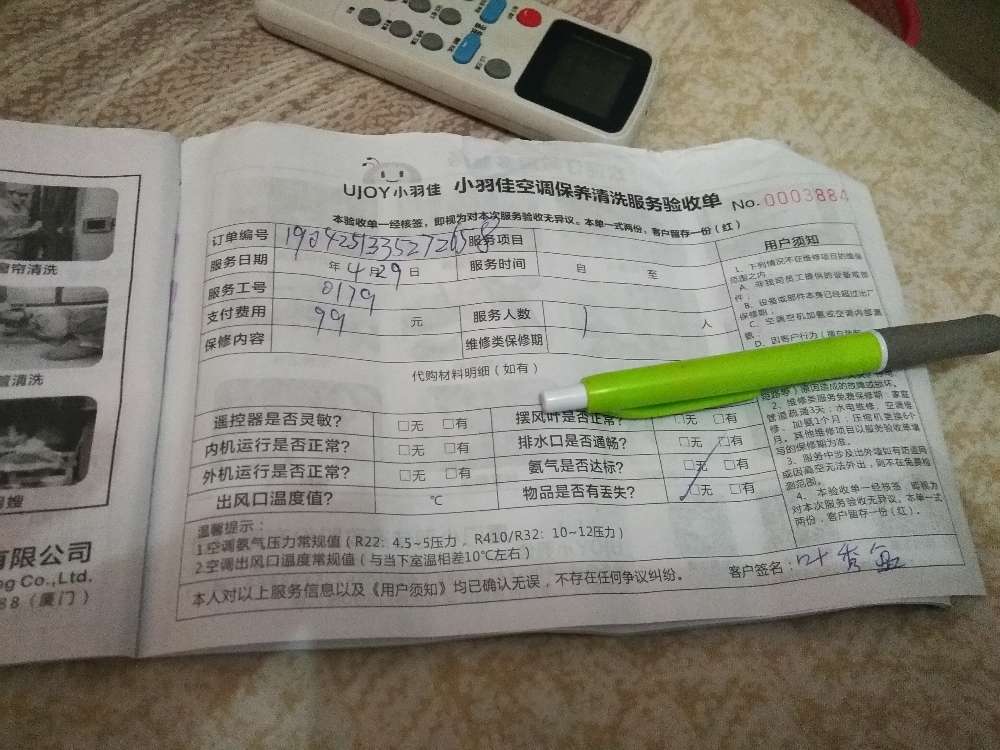 UJOY小羽佳 小羽佳空调保养清洗服务验收单 No.0003884
本验收单一经核签,即视为对本次服务验收无异议。本单一式两份,客户留存一份(红)
订单编号 服务项目
服务日期 年4月29日 服务时间 自 至
服务工号 0179
支付费用 99 元 服务人数 1 人
保修内容 维修类保修期
代购材料明细(如有)
遥控器是否灵敏? □无 □有 摆风叶是否正常? □无 □有
内机运行是否正常? □无 □有 排水口是否通畅? □无 □有
外机运行是否正常? □无 □有 氨气是否达标? □无 □有
出风口温度值? ℃ 物品是否有丢失? □无 □有
温馨提示:
1.空调氨气压力常规值(R22:4.5~5压力,R410/R32:10~12压力)
2.空调出风口温度常规值(与当下室温相差10℃左右)
本人对以上服务信息以及《用户须知》均已确认无误,不存在任何争议纠纷。 客户签名:
用户须知
1、下列情况不在维修项目的维保
范围之内
A、非我司员工提供的设备或部
件;
B、设备或部件本身已经超过出厂
保修期;
C、空调空机加氨或空调内部漏
氨
2、维修类服务免费保修期:家庭
管道疏通3天;水电维修、空调维
修、加氨1个月;压缩机更换6个
月。其他维修项目以服务验收单填
写的保修期为准。
3、服务中涉及出外墙如有防盗网
或因高空无法外出,则不在免费检
测范围。
4、本验收单一经核签,即视为
对本次服务验收无异议。本单一式
两份,客户留存一份(红)。
窗帘清洗
管清洗
有限公司
ng Co.,Ltd.
88(厦门)